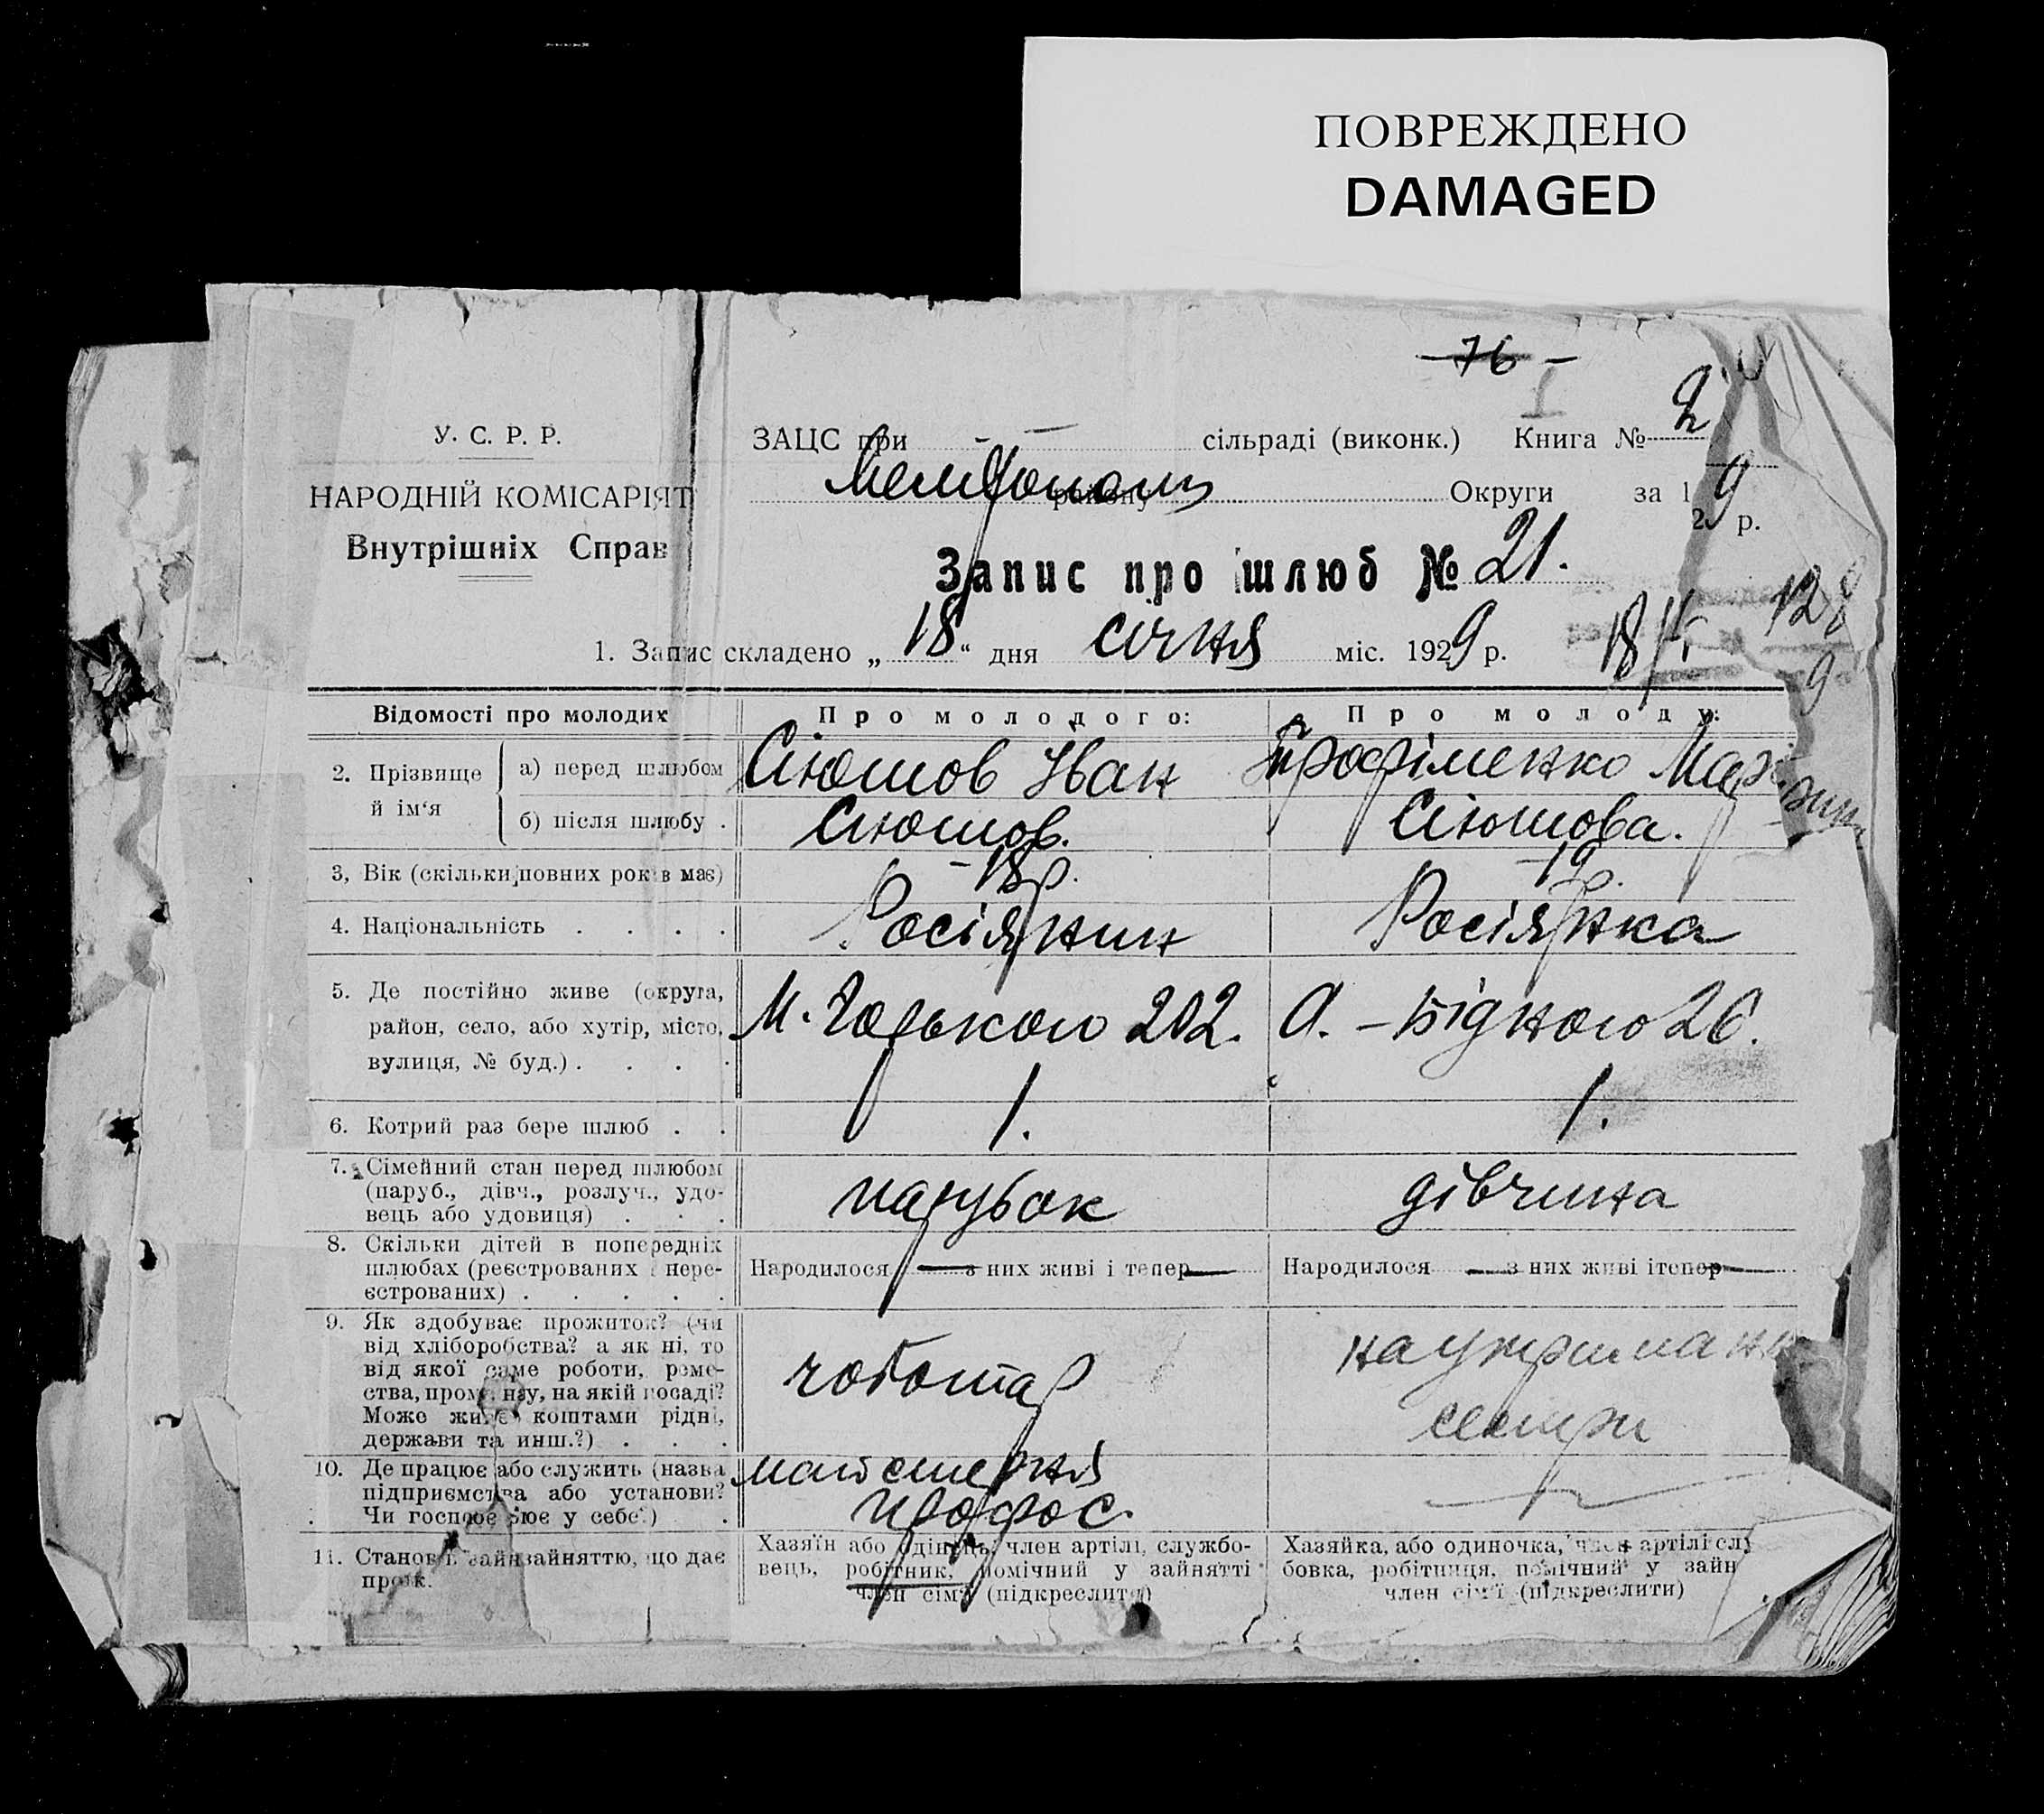 ПОВРЕЖДЕНО
DAMAGED
76 –
I
У. С. Р. Р.
НАРОДНІЙ КОМІСАРІЯТ
Внутрішніх Справ
ЗАЦС при – — сільраді (виконк.) Книга № 2
району Округи за 1 9
2 р.
Запис про шлюб № 21.
1. Запис складено „ 18 “ дня січня міс. 1929 р.
Відомості про молодих
Про молодого:
Про молоду:
2. Прізвище й ім‘я
а) перед шлюбом
Сіюшов Іван
Трофіменко
б) після шлюбу .
Сіюшов.
Сіюшова.
3, Вік (скільки повних років має)
– 18 р.
– 19 р.
4. Національність . . . .
Росіянин
Росіянка
5. Де постійно живе (округа,
район, село, або хутір, місто,
вулиця, № буд.) . . . .
М. Горького 202.
Д. – Бідного 26.
6. Котрий раз бере шлюб . .
1.
1.
7. Сімейний стан перед шлюбом
(паруб., дівч., розлуч., удо-
вець або удовиця) . . .
парубок
дівчина
8. Скільки дітей в попередніх
шлюбах (реєстрованих і нере-
єстрованих) . . . . .
Народилося — з них живі і тепер —
Народилося — з них живі ітепер —
9. Як здобуває прожиток? (чи
від хліборобства? а як ні, то
від якої саме роботи, реме-
ства, пром у, на якій посаді?
Може живе коштами рідні,
держави та инш.?) . . .
чоботар
на утриманн
сестри
10. Де працює або служить (назва
підприємства або установи?
Чи господ ює у себе?) .
майстерня
профос.
—
11. Станов зайнняттю, що дає
прож.
Хазяїн або одинець, член артілі, службо-
вець, робітник, помічний у зайнятті
член сім‘ї (підкреслити)
Хазяйка, або одиночка, член артілі слу
бовка, робітниця, помічний у зайн
член сім‘ї (підкреслити)